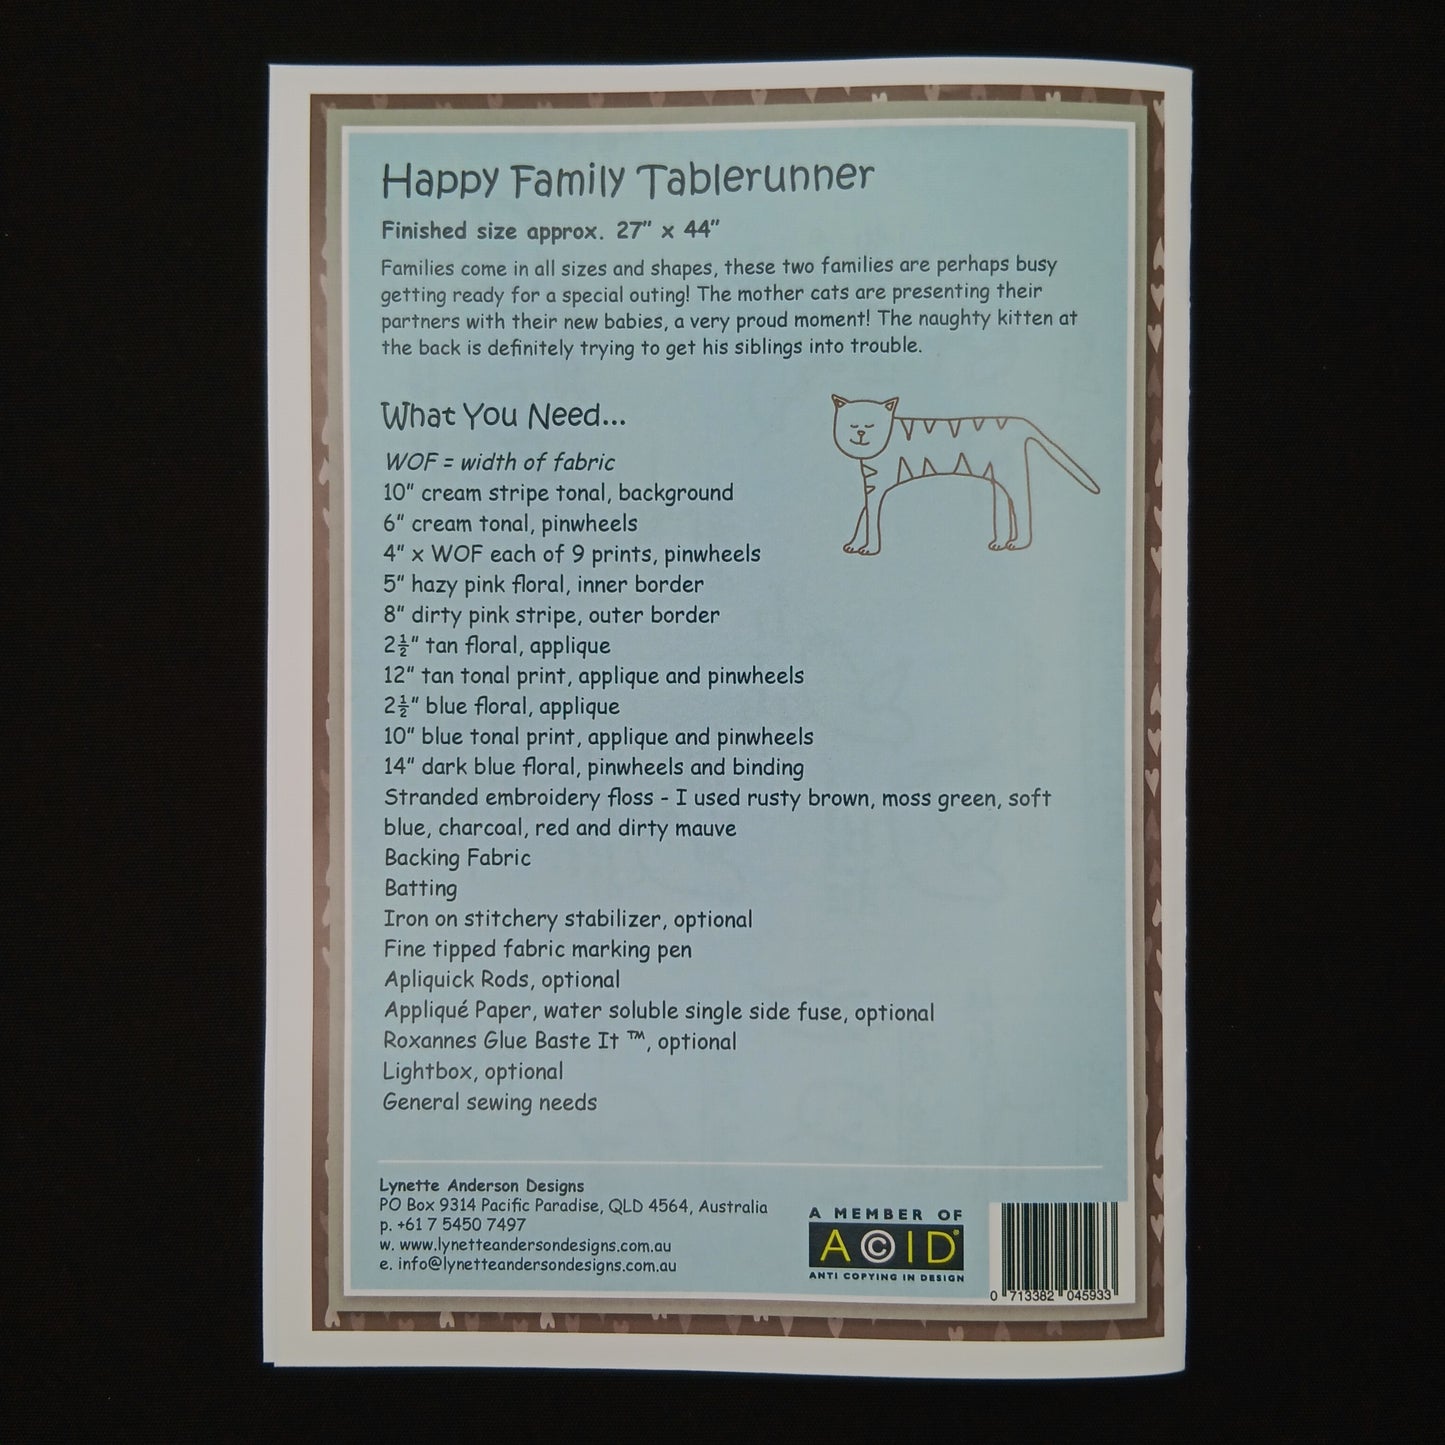 Happy Family Tablerunner
Finished size approx. 27" x 44"
Families come in all sizes and shapes, these two families are perhaps busy
getting ready for a special outing! The mother cats are presenting their
partners with their new babies, a very proud moment! The naughty kitten at
the back is definitely trying to get his siblings into trouble.
What You Need...
WOF = width of fabric
10" cream stripe tonal, background
6" cream tonal, pinwheels
4" x WOF each of 9 prints, pinwheels
5" hazy pink floral, inner border
8" dirty pink stripe, outer border
2½" tan floral, applique
12" tan tonal print, applique and pinwheels
2½" blue floral, applique
10" blue tonal print, applique and pinwheels
14" dark blue floral, pinwheels and binding
Stranded embroidery floss - I used rusty brown, moss green, soft
blue, charcoal, red and dirty mauve
Backing Fabric
Batting
Iron on stitchery stabilizer, optional
Fine tipped fabric marking pen
Apliquick Rods, optional
Appliqué Paper, water soluble single side fuse, optional
Roxannes Glue Baste It ™, optional
Lightbox, optional
General sewing needs
Lynette Anderson Designs
PO Box 9314 Pacific Paradise, QLD 4564, Australia
p. +61 7 5450 7497
w. www.lynetteandersondesigns.com.au
e. info@lynetteandersondesigns.com.au
A MEMBER OF
A©ID®
ANTI COPYING IN DESIGN
0 713382 045933